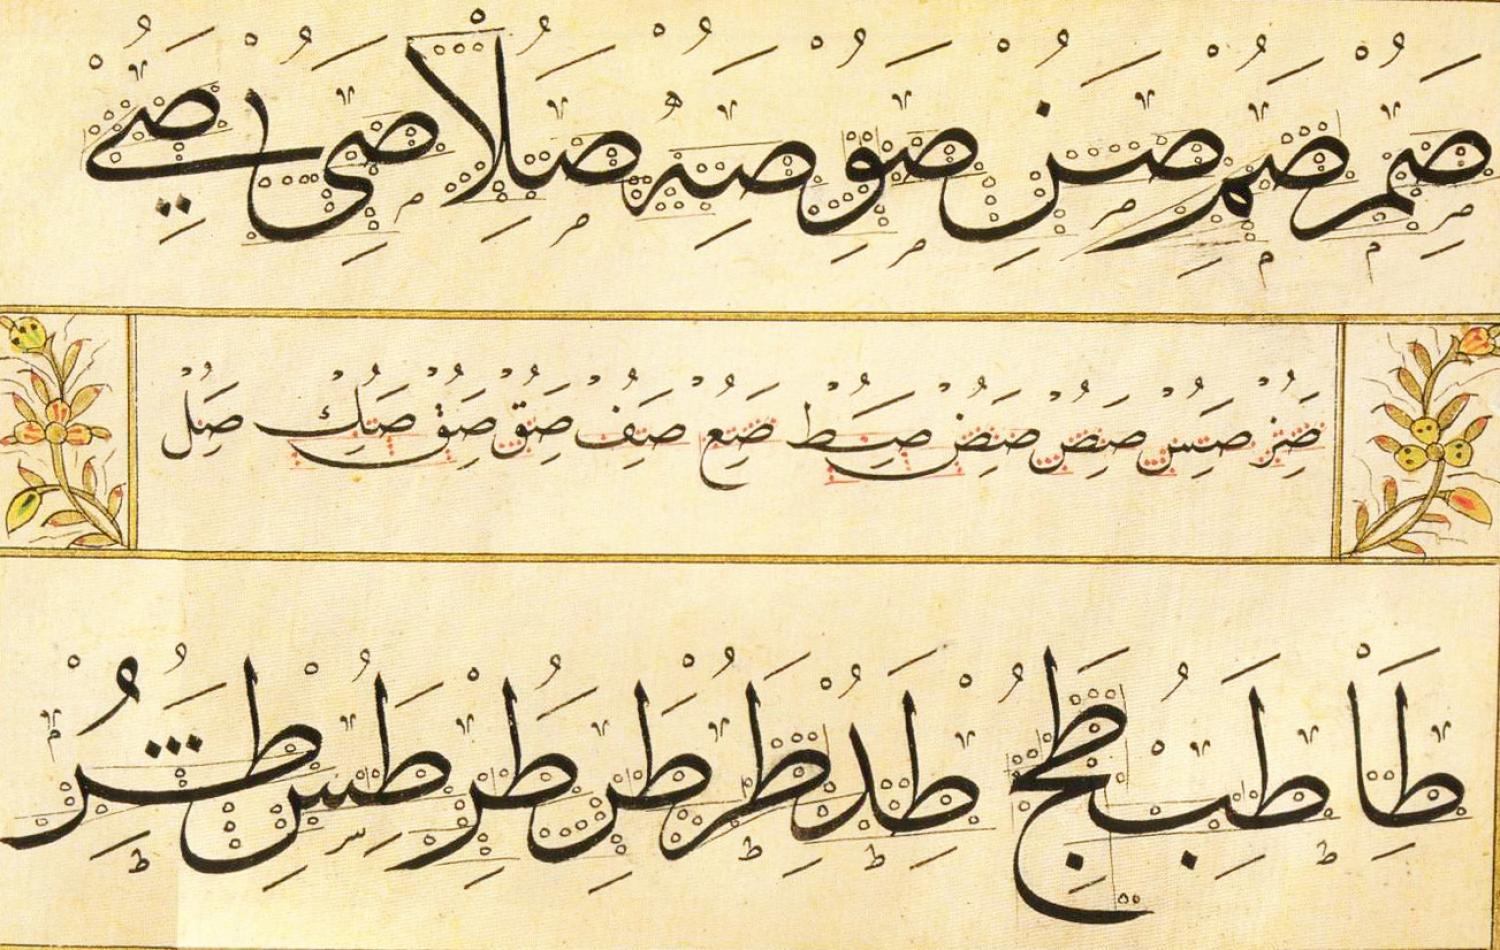 صم صم صن صو صه صلا صى صي
صر صس صص صض صط صع صف صق صق صك صل
طا طب طج طد طر طر طر طس